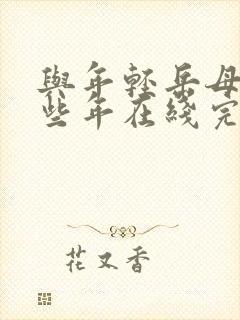 與年輕岳母
些年在綫完
花又香